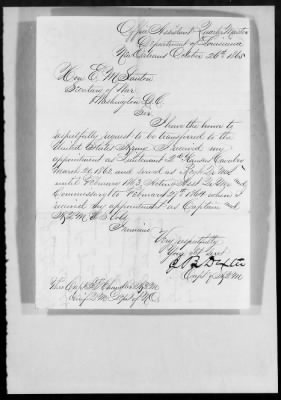 Office Assistant Quarter Master
Department of Louisiana
New Orleans October 26th 1865
Hon E. M. Stanton
Secretary of War
Washington D.C.
Sir
I have the honor to
respectfully request to be transferred to the
United States Army I received my
appointment as Lieutenant 2nd Kansas Cavalry
March 1862 and served as
until February 1863, Acting Asst Q. M. and
Commissary to February 1864 when I
received my appointment as Captain and
A.Q.M. U.S. Vols
I remain
Very respectfully
Your Obt Servt
Capt & A.Q.M
Thro
Chf Q.M. Dept of